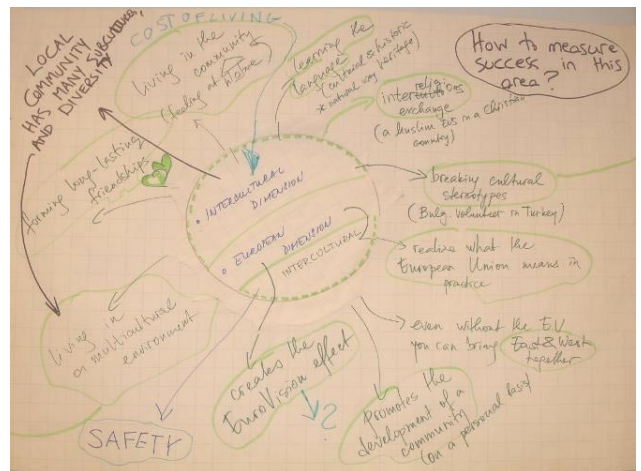 COST OF LIVING
LOCAL
COMMUNITY
HAS MANY SUBCULTURES,
AND DIVERSITY
living in the
community
(feeling at home)
learning the
language
(cultural & historic
* natural way heritage)
How to measure
success in this
area?
religious
exchange
(a muslim EVS in a Christian
country)
forming long-lasting
friendships
• INTERCULTURAL
DIMENSION
• EUROPEAN DIMENSION
INTERCULTURAL
breaking cultural
stereotypes
(Bulg. volunteer in Turkey)
realize what the
European Union means in
practice
even without the EV
you can bring East & West
together
living in
a multicultural
environment
creates the
EuroVision effect
?
Promotes the
development of a
community
(on a personal basis)
SAFETY